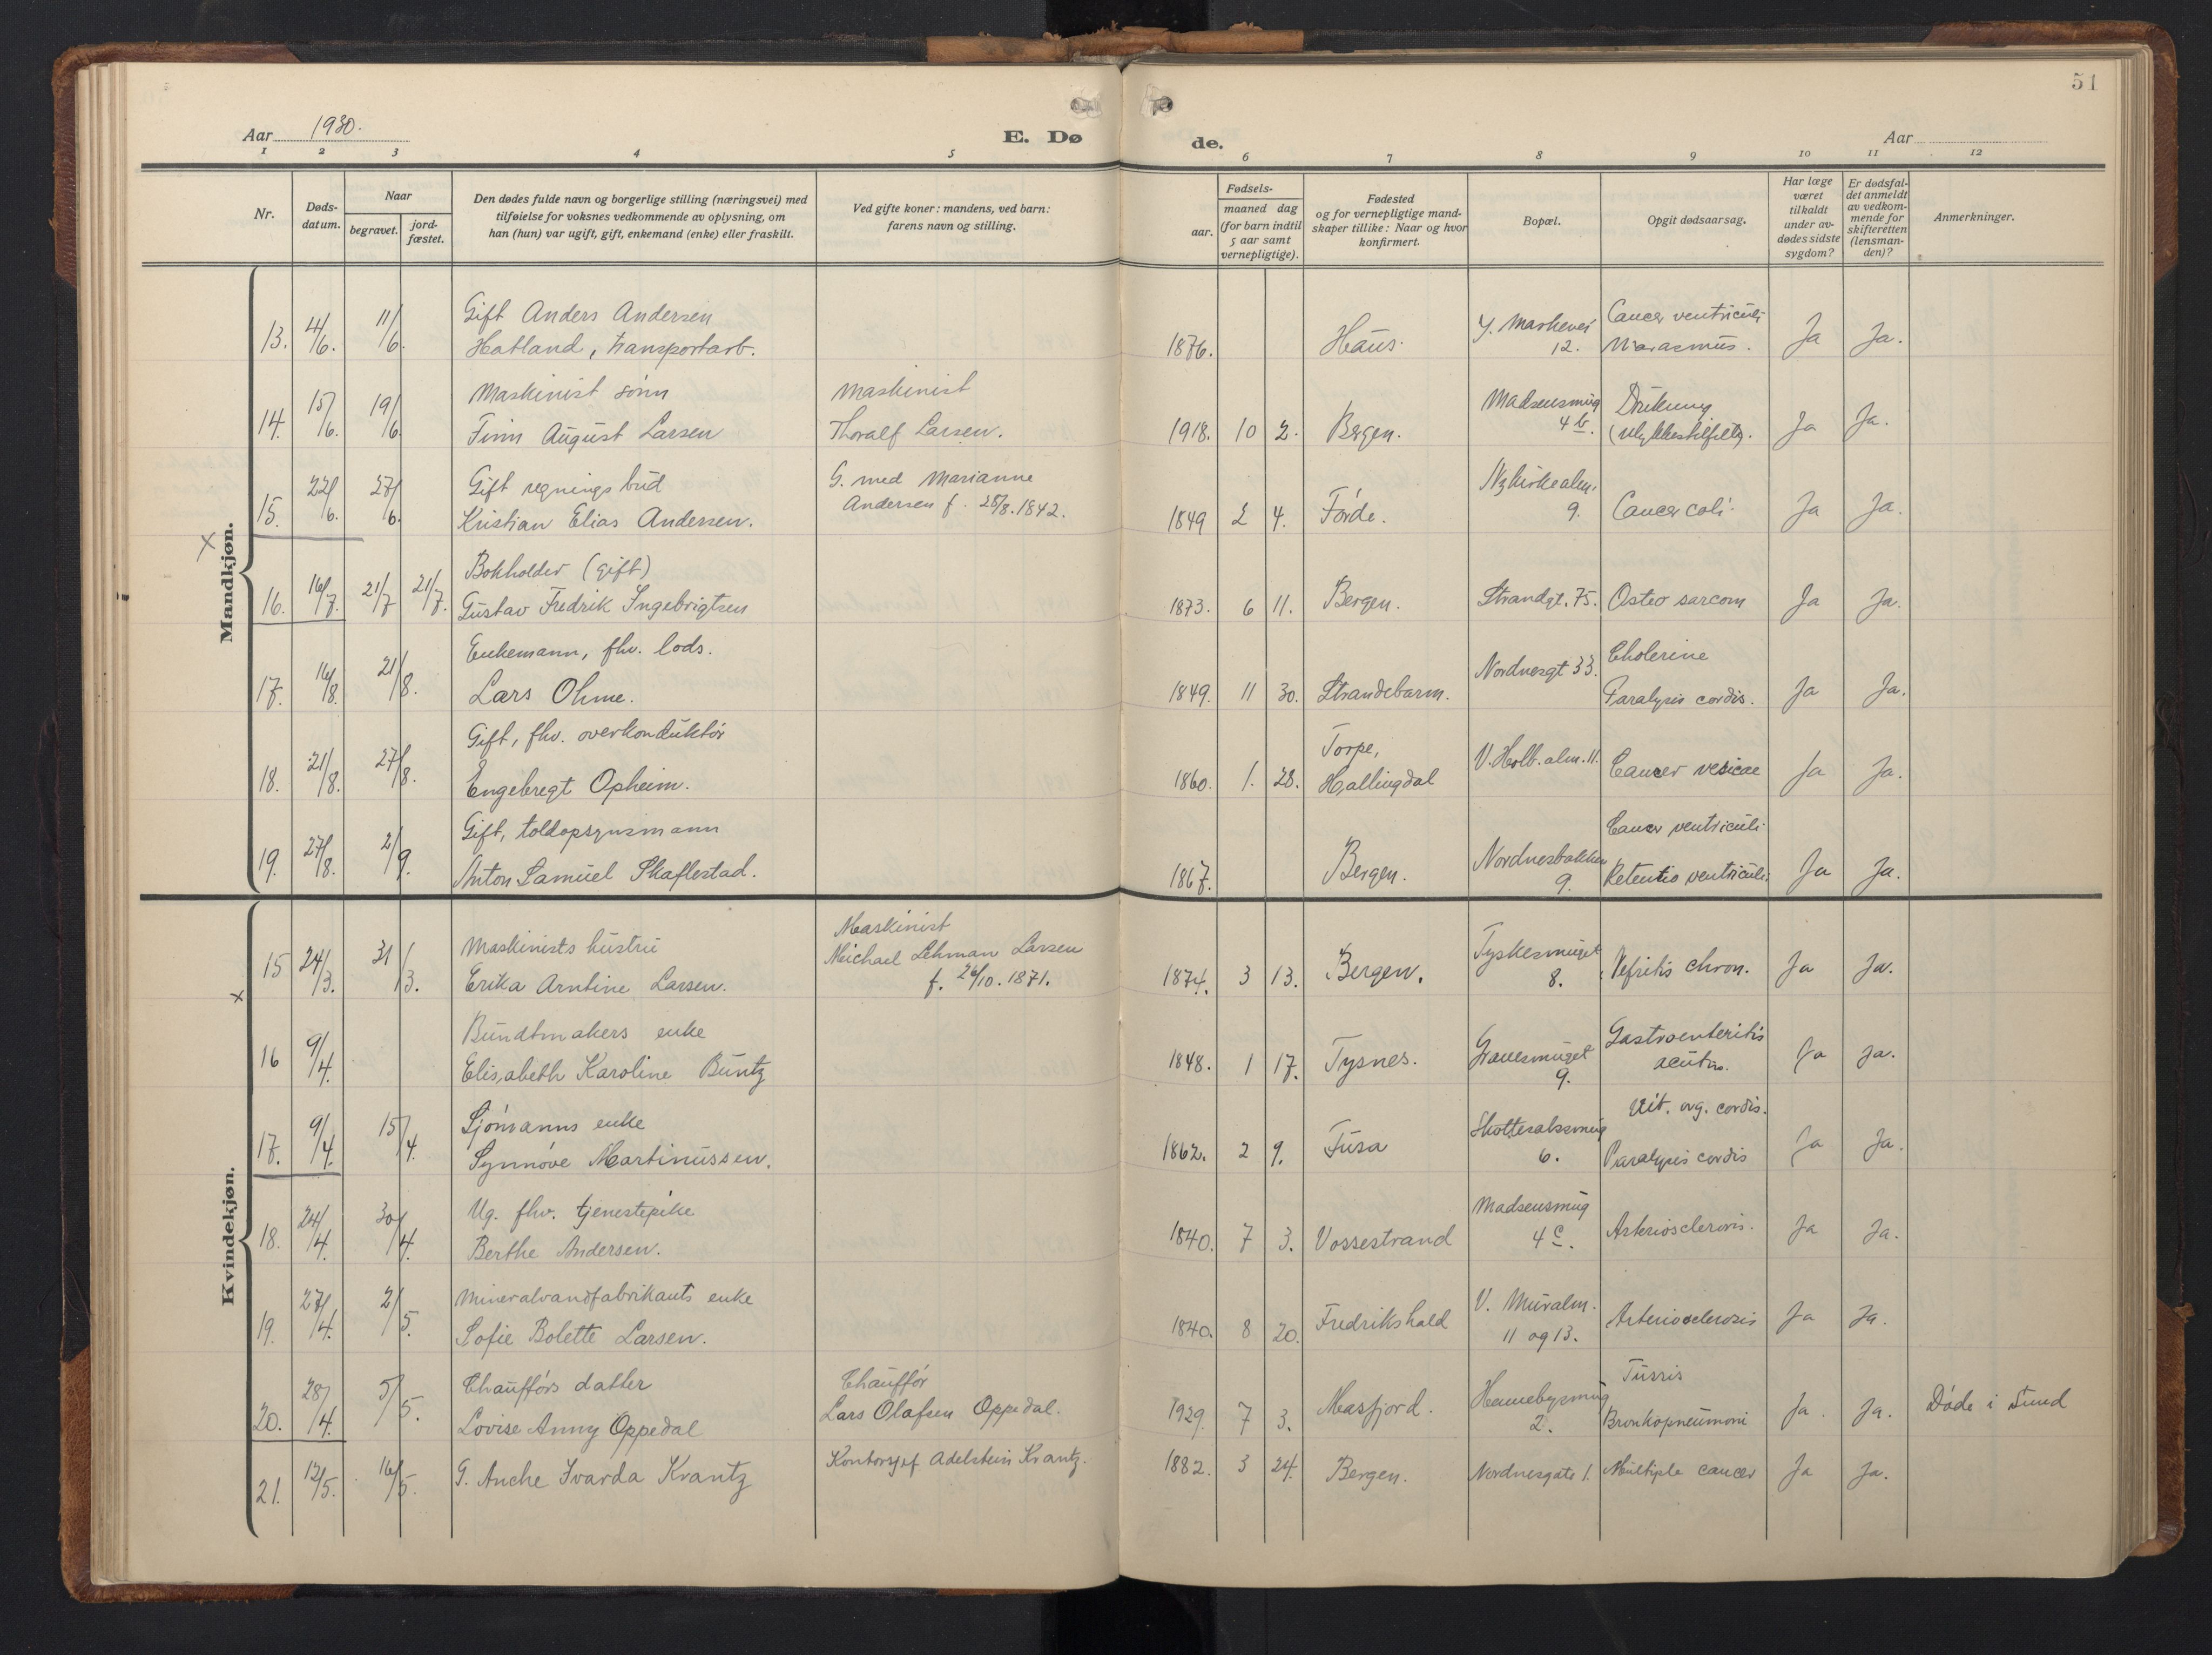 51
Aar 1930.
E. Dø
de.
Aar
1 2 3 4 5 6 7 8 9 10 11 12
Nr.
Døds-
datum.
Naar
begravet.
jord-
fæstet.
Den dødes fulde navn og borgerlige stilling (næringsvei) med
tilføielse for voksnes vedkommende av oplysning, om
han (hun) var ugift, gift, enkemand (enke) eller fraskilt.
Ved gifte koner: mandens, ved barn:
farens navn og stilling.
Fødsels-
aar.
maaned dag
(for barn indtil
5 aar samt
vernepligtige).
Fødested
og for vernepligtige mand-
skaper tillike: Naar og hvor
konfirmert.
Bopæl.
Opgit dødsaarsag.
Har læge
været
tilkaldt
under av-
dødes sidste
sygdom?
Er dødsfal-
det anmeldt
av vedkom-
mende for
skifteretten
(lensman-
den)?
Anmerkninger.
Mandkjøn.
Gift Anders Andersen
13. 4/6. 11/6. Hatland, transportarb. 1876. Haus. Y. Markevei 12. Cancer ventriculi Marasmus. Ja Ja.
Maskinist sønn
14. 15/6. 19/6 Finn August Larsen Maskinist Thoralf Larsen. 1918. 10 2. Bergen. Madsensmug 4b. Drukning (ulykkestilfelle). Ja Ja.
Gift regningsbud
15. 22/6. 27/6. Kristian Elias Andersen. G. med Marianne Andersen f. 28/8.1842. 1849 2 4. Førde. Nykirkealm. 9. Cancer coli. Ja Ja.
Bokholder (gift)
16. 16/7. 21/7 21/7. Gustav Fredrik Ingebrigtsen 1873. 6 11. Bergen. Strandgt. 75. Osteo sarcom Ja Ja.
Enkemann, fhv. lods.
17. 16/8. 21/8. Lars Ohme. 1849. 11 30. Strandebarm. Nordnesgt 33. Cholerine Paralysis cordis. Ja Ja.
Gift, fhv. overkonduktør
18. 21/8. 27/8. Engebregt Opheim. 1860. 1. 28. Torpe, Hallingdal V. Holb. alm. 11. Cancer vesicae Ja Ja.
Gift, toldopsynsmann
19. 27/8. 2/9. Anton Samuel Skaflestad. 1867. Bergen. Nordnesbakken 9. Cancer ventriculi Retentio ventriculi Ja Ja.
Kvindekjøn.
Maskinists hustru
15 24/3. 31/3. Erika Arntine Larsen. Maskinist Michael Lehman Larsen f. 26/10.1871. 1874. 3 13. Bergen. Tyskesmuget 8. Nefritis chron. Ja Ja.
Bundtmakers enke
16 9/4. Elisabeth Karoline Buntz 1848. 1 17. Tysnes. 9. Gastroenteritis acuta. Ja Ja.
Sjømanns enke
17. 9/4. 15/4. Synnøve Martinussen. 1862. 2 9. Fusa 6. Vit. org. cordis. Paralysis cordis Ja Ja.
Ug. fhv. tjenestepike
18. 24/4. 30/4. Berthe Andersen. 1840. 7 3. Vossestrand Madsensmug 4c. Arteriosclerosis. Ja Ja.
Mineralvandfabrikants enke
19. 27/4. 2/5. Sofie Bolette Larsen. 1840. 8 20. Fredrikshald V. Muralm. 11 og 13. Arteriosclerosis Ja Ja.
Chaufførs datter
20. 28/4. 5/5. Lovise Anny Oppedal Chauffør Lars Olafsen Oppedal. 1929. 7 3. Masfjord. Hennebysmug 2. Tussis Bronkopneumoni Ja. Ja. Døde i Sund
21. 12/5. 16/5. G. Anche Ivarda Krantz Kontorsjef Adelstein Krantz. 1882. 3 24. Bergen. Nordnesgate 1. Multiple cancer Ja Ja.